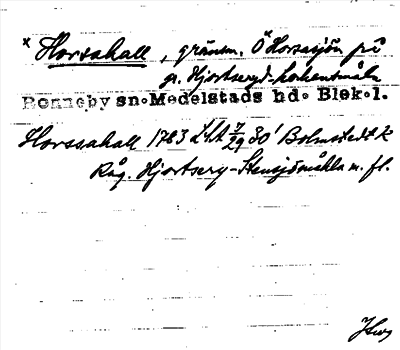 × Horsahall, gränm. Ö Horsasjön på
gr. Hjortseryd-
Ronneby sn. Medelstads hd. Blek.l.
Horssahall 1783 7/29 30' Bolmstedt k
Råg. Hjortsery-Stensjömåhla m. fl.